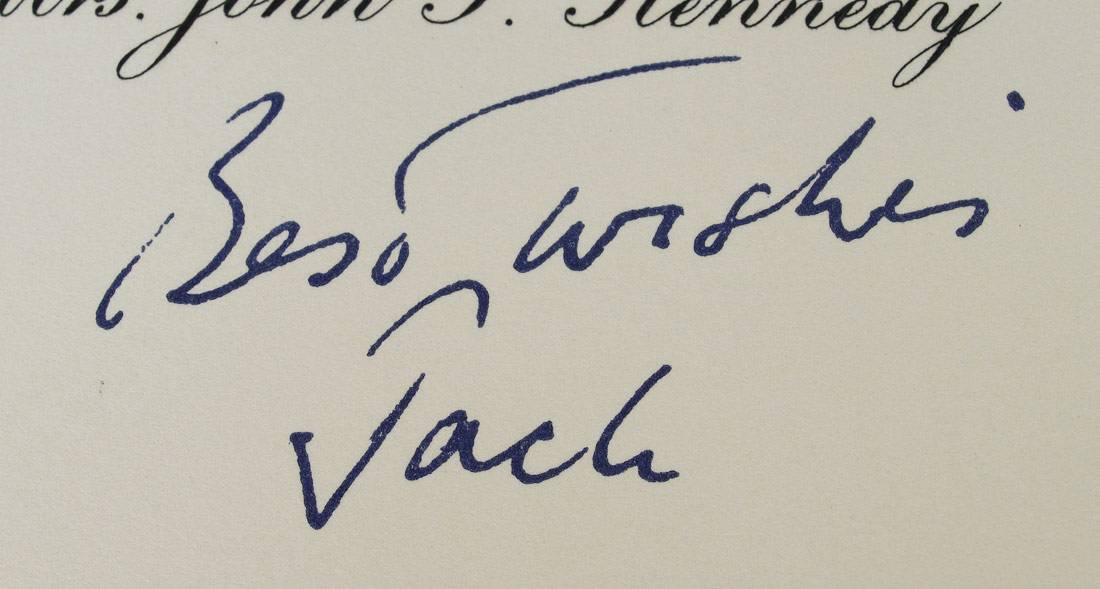 Mrs. John F. Kennedy
Best wishes
Jack